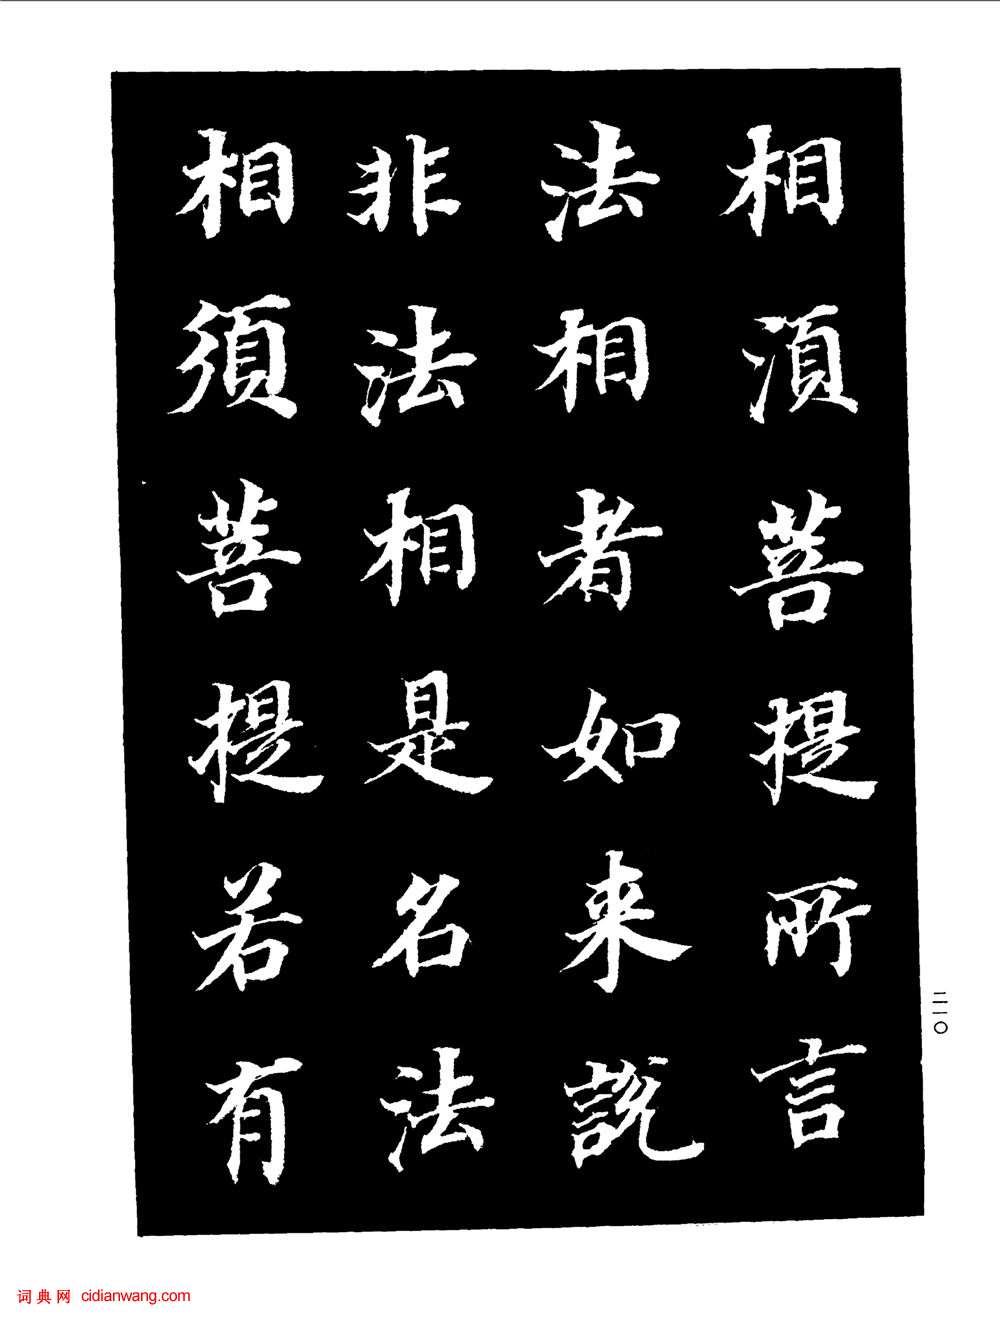 相須菩提所言
法相者如来說
非法相是名法
相須菩提若有
二一〇
词典网 cidianwang.com